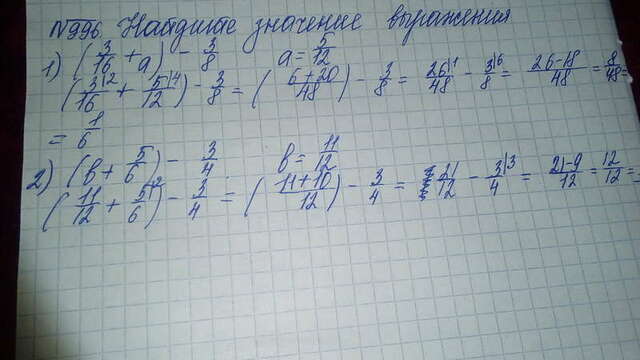 №996. Найдите значение выражения
1) (3/16 + a) - 3/8 a = 5/12
(3|2/16 + 5|4/12) - 3/8 = (6+20/48) - 3/8 = 26|1/48 - 3|6/8 = 26-18/48 = 8/48 =
= 1/6
2) (b + 5/6) - 3/4 b = 11/12
(11/12 + 5|2/6) - 3/4 = (11+10/12) - 3/4 = 21/12 - 3|3/4 = 21-9/12 = 12/12 =